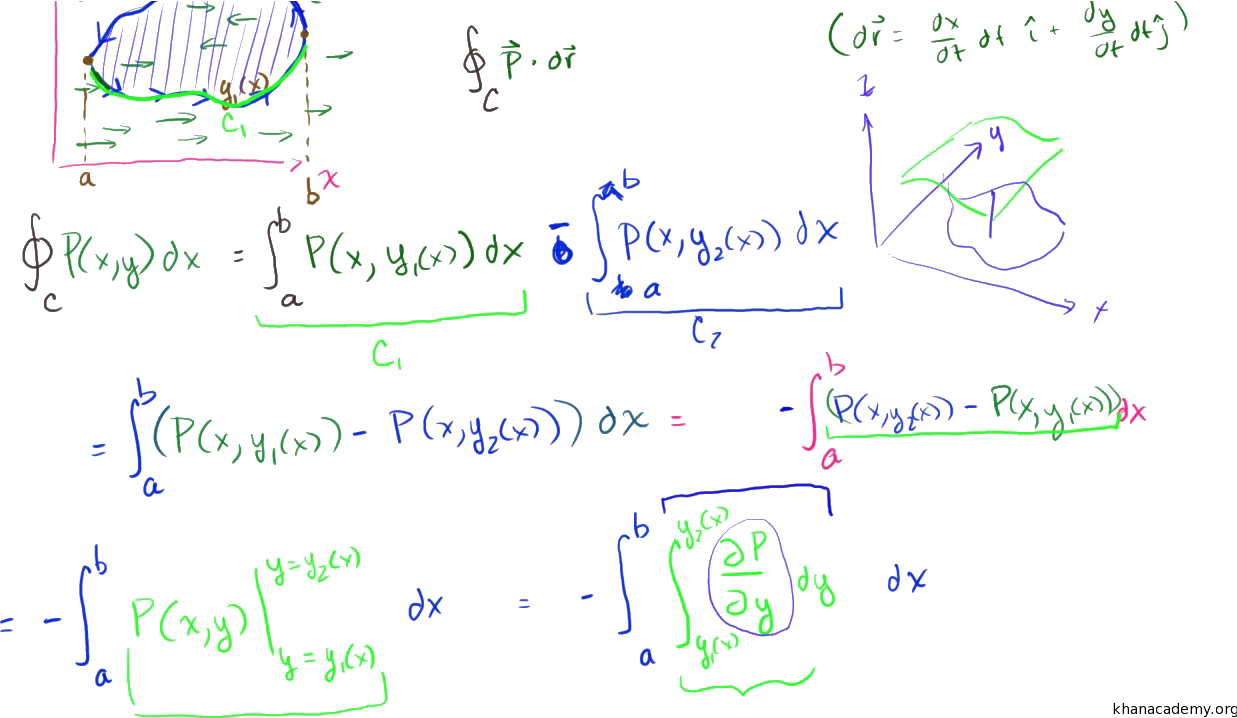 (dr⃗ = dx/dt dt î + dy/dt dt ĵ)
∮_C P⃗ · dr⃗
y₁(x)
C₁
a b x
z y x
∮_C P(x,y) dx = ∫_a^b P(x, y₁(x)) dx − ∫_a^b P(x, y₂(x)) dx
C₁ C₂
= ∫_a^b (P(x, y₁(x)) − P(x, y₂(x))) dx = − ∫_a^b (P(x, y₂(x)) − P(x, y₁(x))) dx
= − ∫_a^b P(x,y) |_{y = y₁(x)}^{y = y₂(x)} dx = − ∫_a^b ∫_{y₁(x)}^{y₂(x)} ∂P/∂y dy dx
khanacademy.org